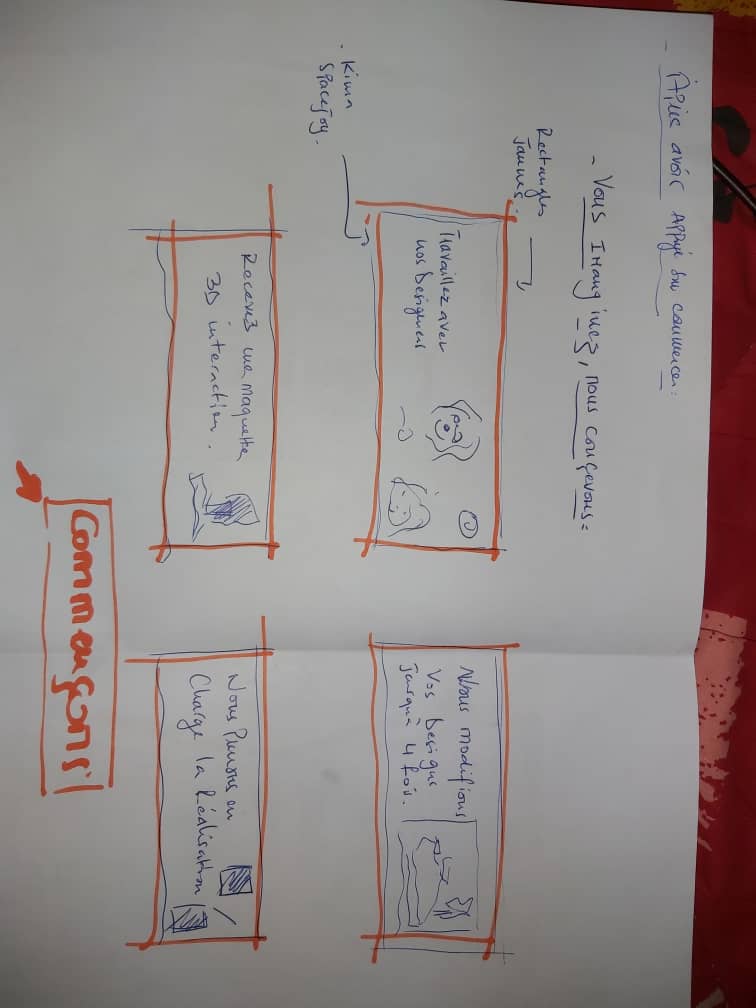 - Après avoir Appuyé sur commencer:
- Vous Imaginez, nous conçevons:
Rectangles
Jaunes.
. Kiwn
spacejoy.
Travaillez avec
nos Designers
Nous modifions
Vos Designs
Jusqu'à 4 fois.
Recevez une maquette
3D interaction.
Nous Prenons en
Charge la Réalisation
Commençons